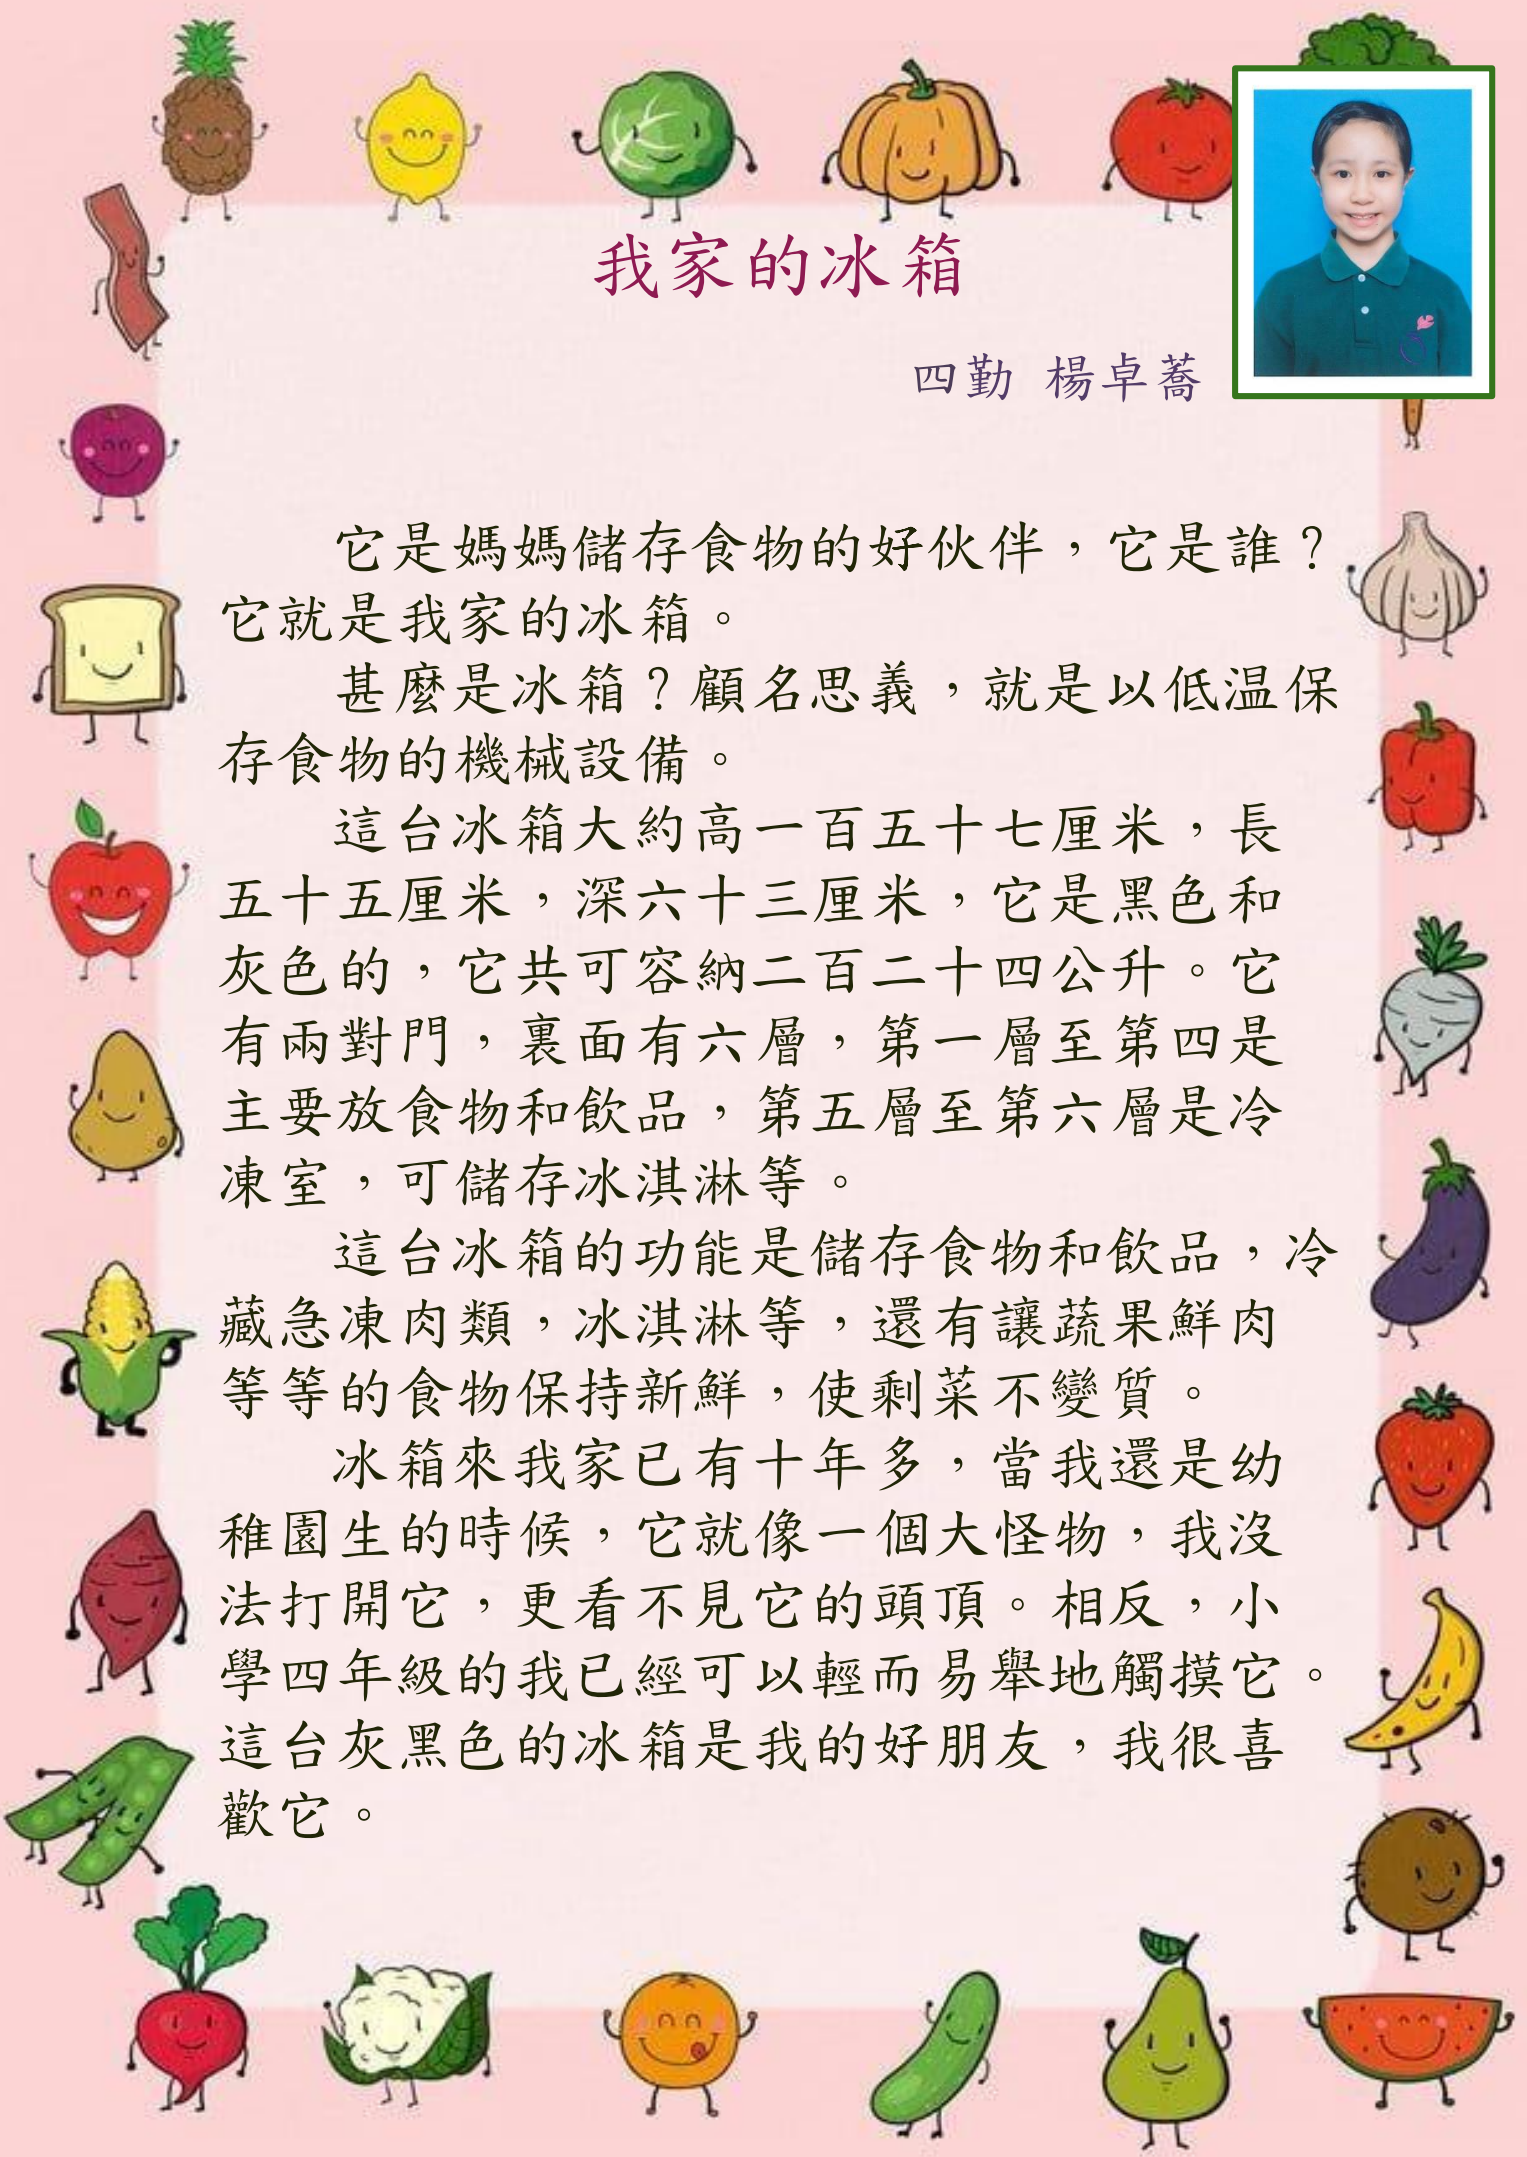 我家的冰箱
四勤 楊卓蕎
它是媽媽儲存食物的好伙伴，它是誰？
它就是我家的冰箱。
甚麼是冰箱？顧名思義，就是以低温保
存食物的機械設備。
這台冰箱大約高一百五十七厘米，長
五十五厘米，深六十三厘米，它是黑色和
灰色的，它共可容納二百二十四公升。它
有兩對門，裏面有六層，第一層至第四是
主要放食物和飲品，第五層至第六層是冷
凍室，可儲存冰淇淋等。
這台冰箱的功能是儲存食物和飲品，冷
藏急凍肉類，冰淇淋等，還有讓蔬果鮮肉
等等的食物保持新鮮，使剩菜不變質。
冰箱來我家已有十年多，當我還是幼
稚園生的時候，它就像一個大怪物，我沒
法打開它，更看不見它的頭頂。相反，小
學四年級的我已經可以輕而易舉地觸摸它。
這台灰黑色的冰箱是我的好朋友，我很喜
歡它。